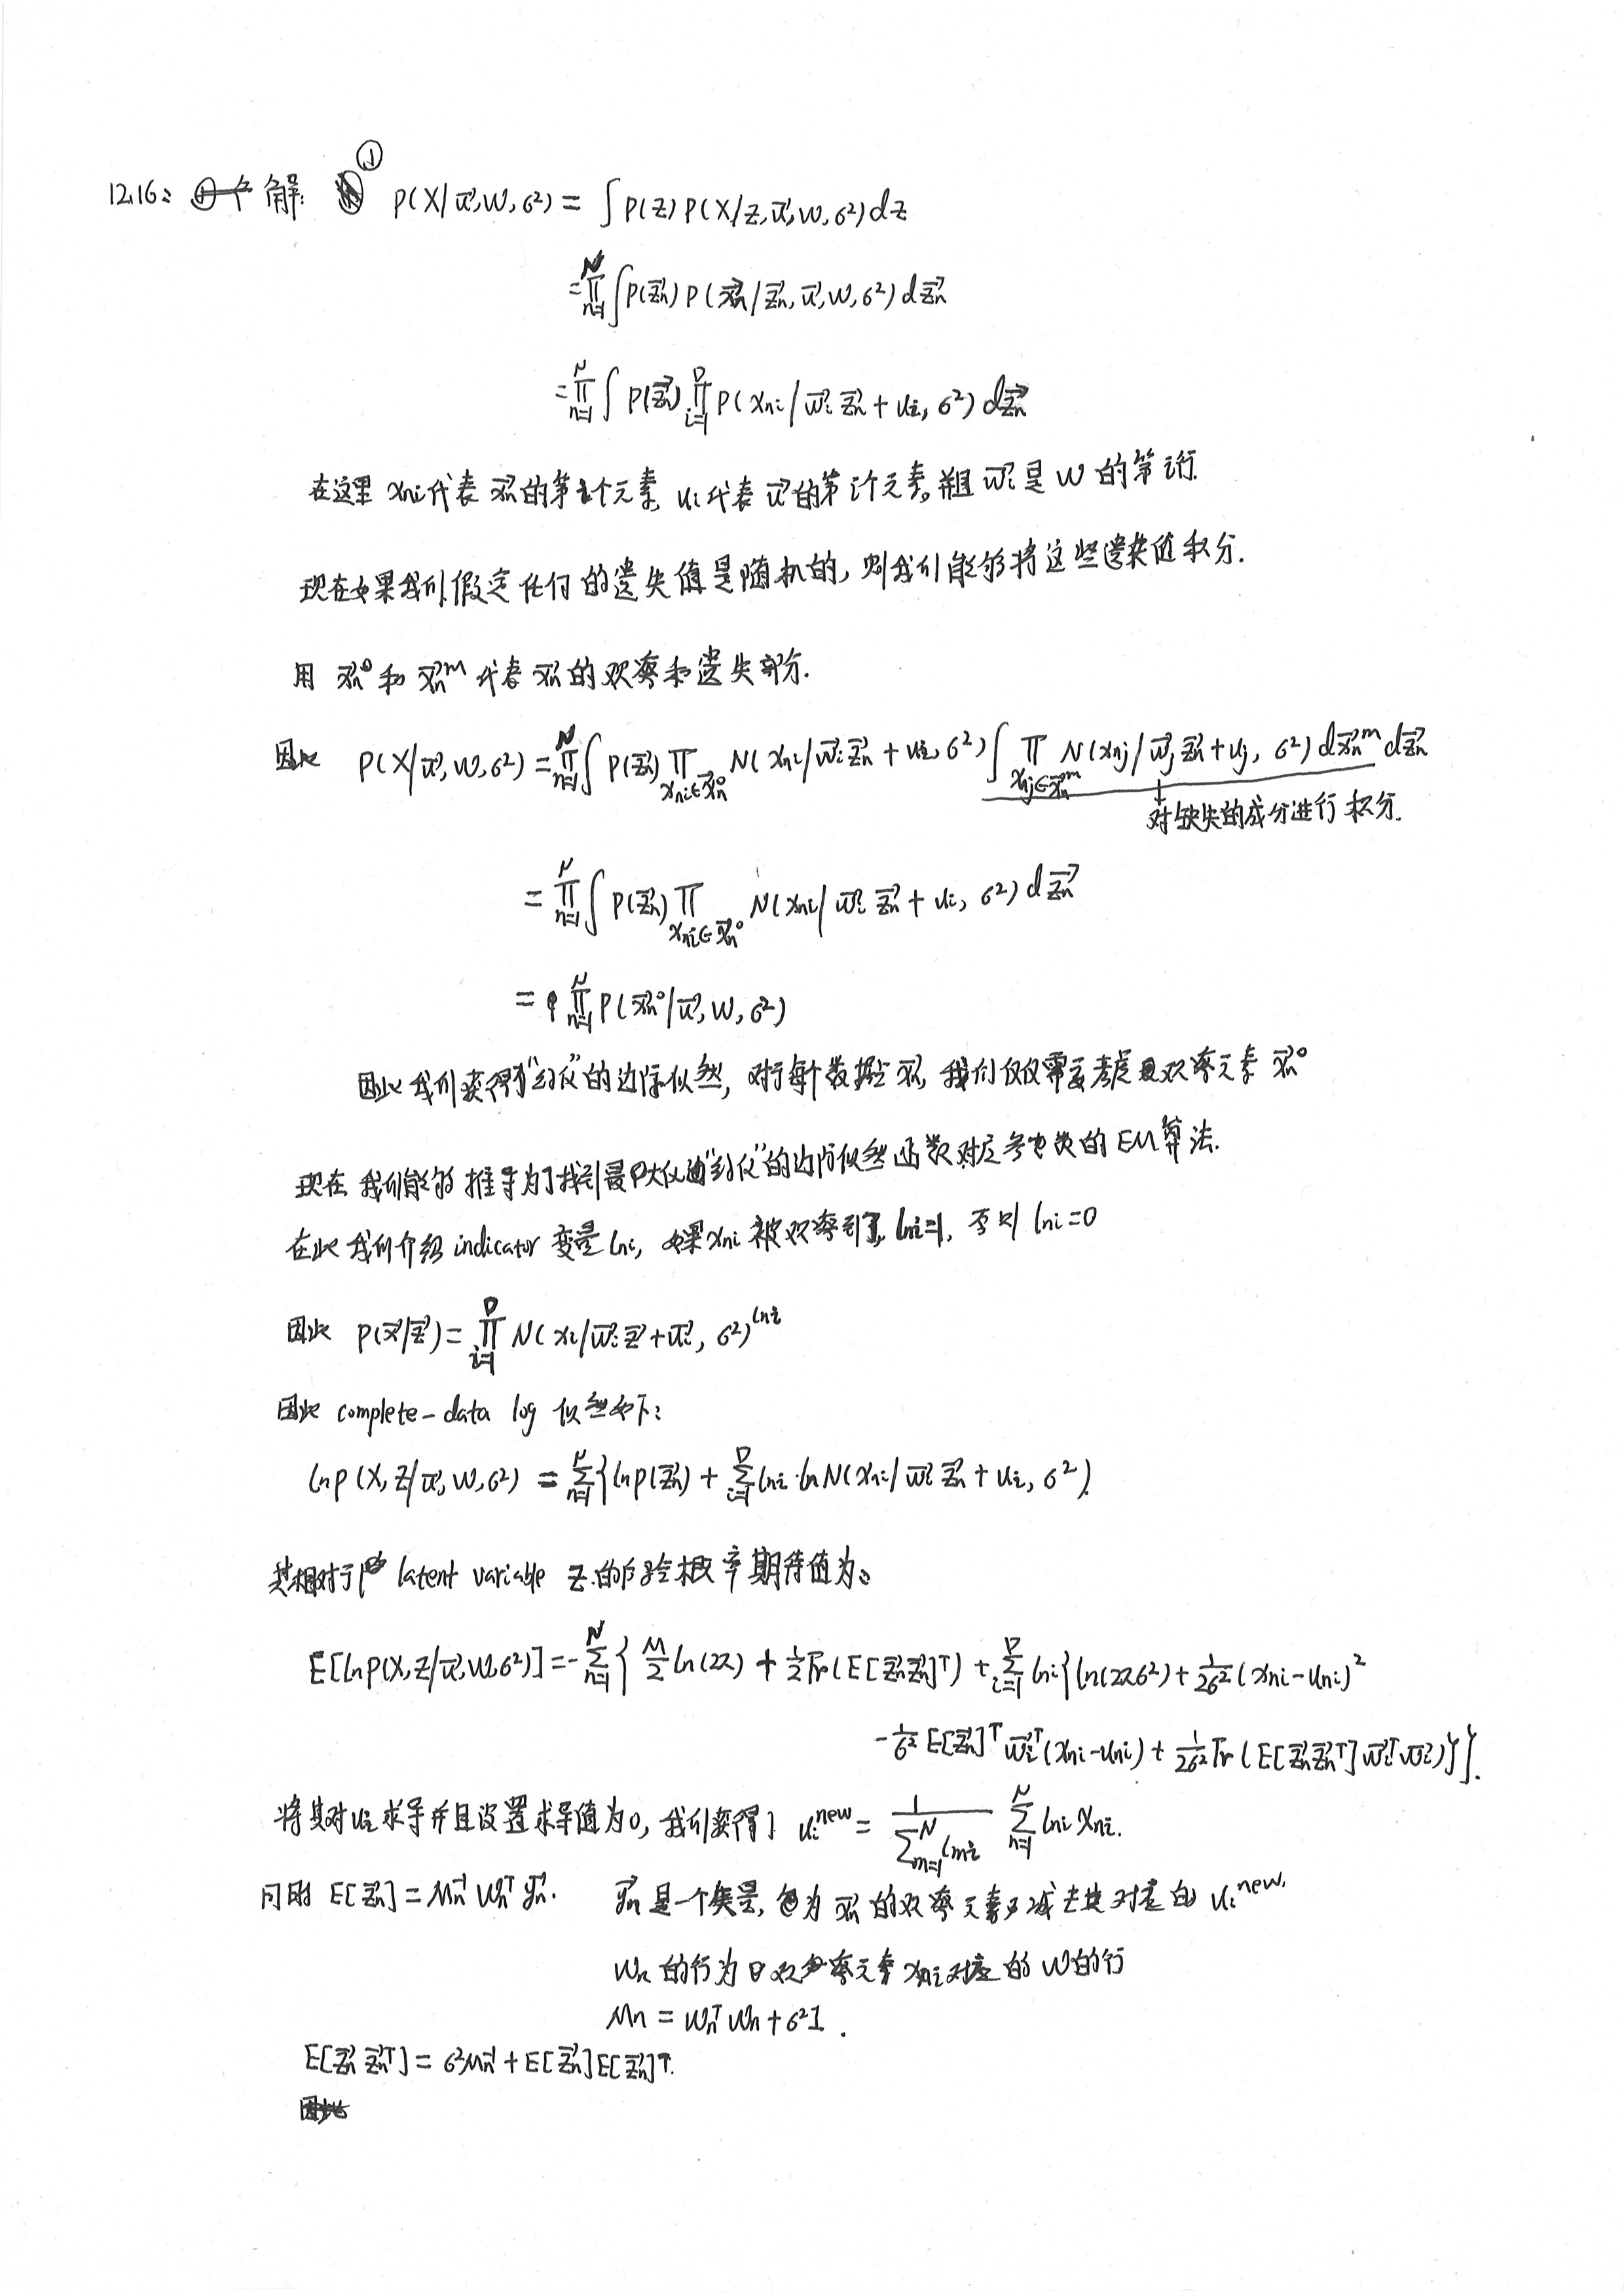 12.16: 解: ① P(X/u⃗,W,σ²) = ∫P(Z)P(X/Z,u⃗,W,σ²)dZ
= ∏_{n=1}^{N} ∫P(z⃗n)P(x⃗n/z⃗n,u⃗,W,σ²)dz⃗n
= ∏_{n=1}^{N} ∫P(z⃗n) ∏_{i=1}^{D} P(xni/w⃗i z⃗n + ui, σ²)dz⃗n
在这里 xni代表 x⃗n的第i个元素, ui代表 u⃗的第i个元素,并且 w⃗i 是 W 的第i行.
现在如果我们假定任何的遗失值是随机的, 则我们能够将这些遗失值积分.
用 x⃗n^o 和 x⃗n^m 代表 x⃗n 的观察和遗失部分.
因此 P(X/u⃗,W,σ²) = ∏_{n=1}^{N} ∫P(z⃗n) ∏_{xni∈x⃗n^o} N(xni/w⃗i z⃗n + ui, σ²) ∫ ∏_{xnj∈x⃗n^m} N(xnj/w⃗j z⃗n + uj, σ²)dx⃗n^m dz⃗n
↓
对缺失的成分进行积分.
= ∏_{n=1}^{N} ∫P(z⃗n) ∏_{xni∈x⃗n^o} N(xni/w⃗i z⃗n + ui, σ²)dz⃗n
= ∏_{n=1}^{N} P(x⃗n^o/u⃗,W,σ²)
因此我们获得了"约仪"的边际似然, 对于每个数据点 x⃗n, 我们仅仅需要考虑观察元素 x⃗n^o
现在我们能够推导为了找到最大化"约仪"的边际似然函数对应参数的EM算法.
在此我们介绍 indicator 变量 lni, 如果 xni 被观察到了, lni=1, 否则 lni=0
因此 P(x⃗/z⃗) = ∏_{i=1}^{D} N(xi/w⃗i z⃗ + u⃗i, σ²)^{lni}
因此 complete-data log 似然如下:
lnp(X,Z/u⃗,W,σ²) = ∑_{n=1}^{N} {lnp(z⃗n) + ∑_{i=1}^{D} lni·lnN(xni/w⃗i z⃗n + ui, σ²)}.
其相对于 latent variable Z 的后验概率期待值为:
E[lnp(X,Z/u⃗,W,σ²)] = -∑_{n=1}^{N} { M/2 ln(2π) + 1/2 Tr(E[z⃗n z⃗n]^T) + ∑_{i=1}^{D} lni{ln(2πσ²) + 1/2σ² (xni-uni)²
- 1/σ² E[z⃗n]^T w⃗i^T(xni-uni) + 1/2σ² Tr(E[z⃗n z⃗n^T] w⃗i^T w⃗i)}}.
将其对ui求导并且设置求导值为0, 我们获得了 ui^new = 1/∑_{m=1}^{N} lmi ∑_{n=1}^{N} lni xni.
同时 E[z⃗n] = Mn^-1 Wn^T y⃗n. y⃗n 是一个矢量, 为 x⃗n 的观察元素减去其对应的 ui^new.
Wn 的行为观察元素 xni对应的 W的行
Mn = Wn^T Wn + σ²I.
E[z⃗n z⃗n^T] = σ²Mn^-1 + E[z⃗n]E[z⃗n]^T.